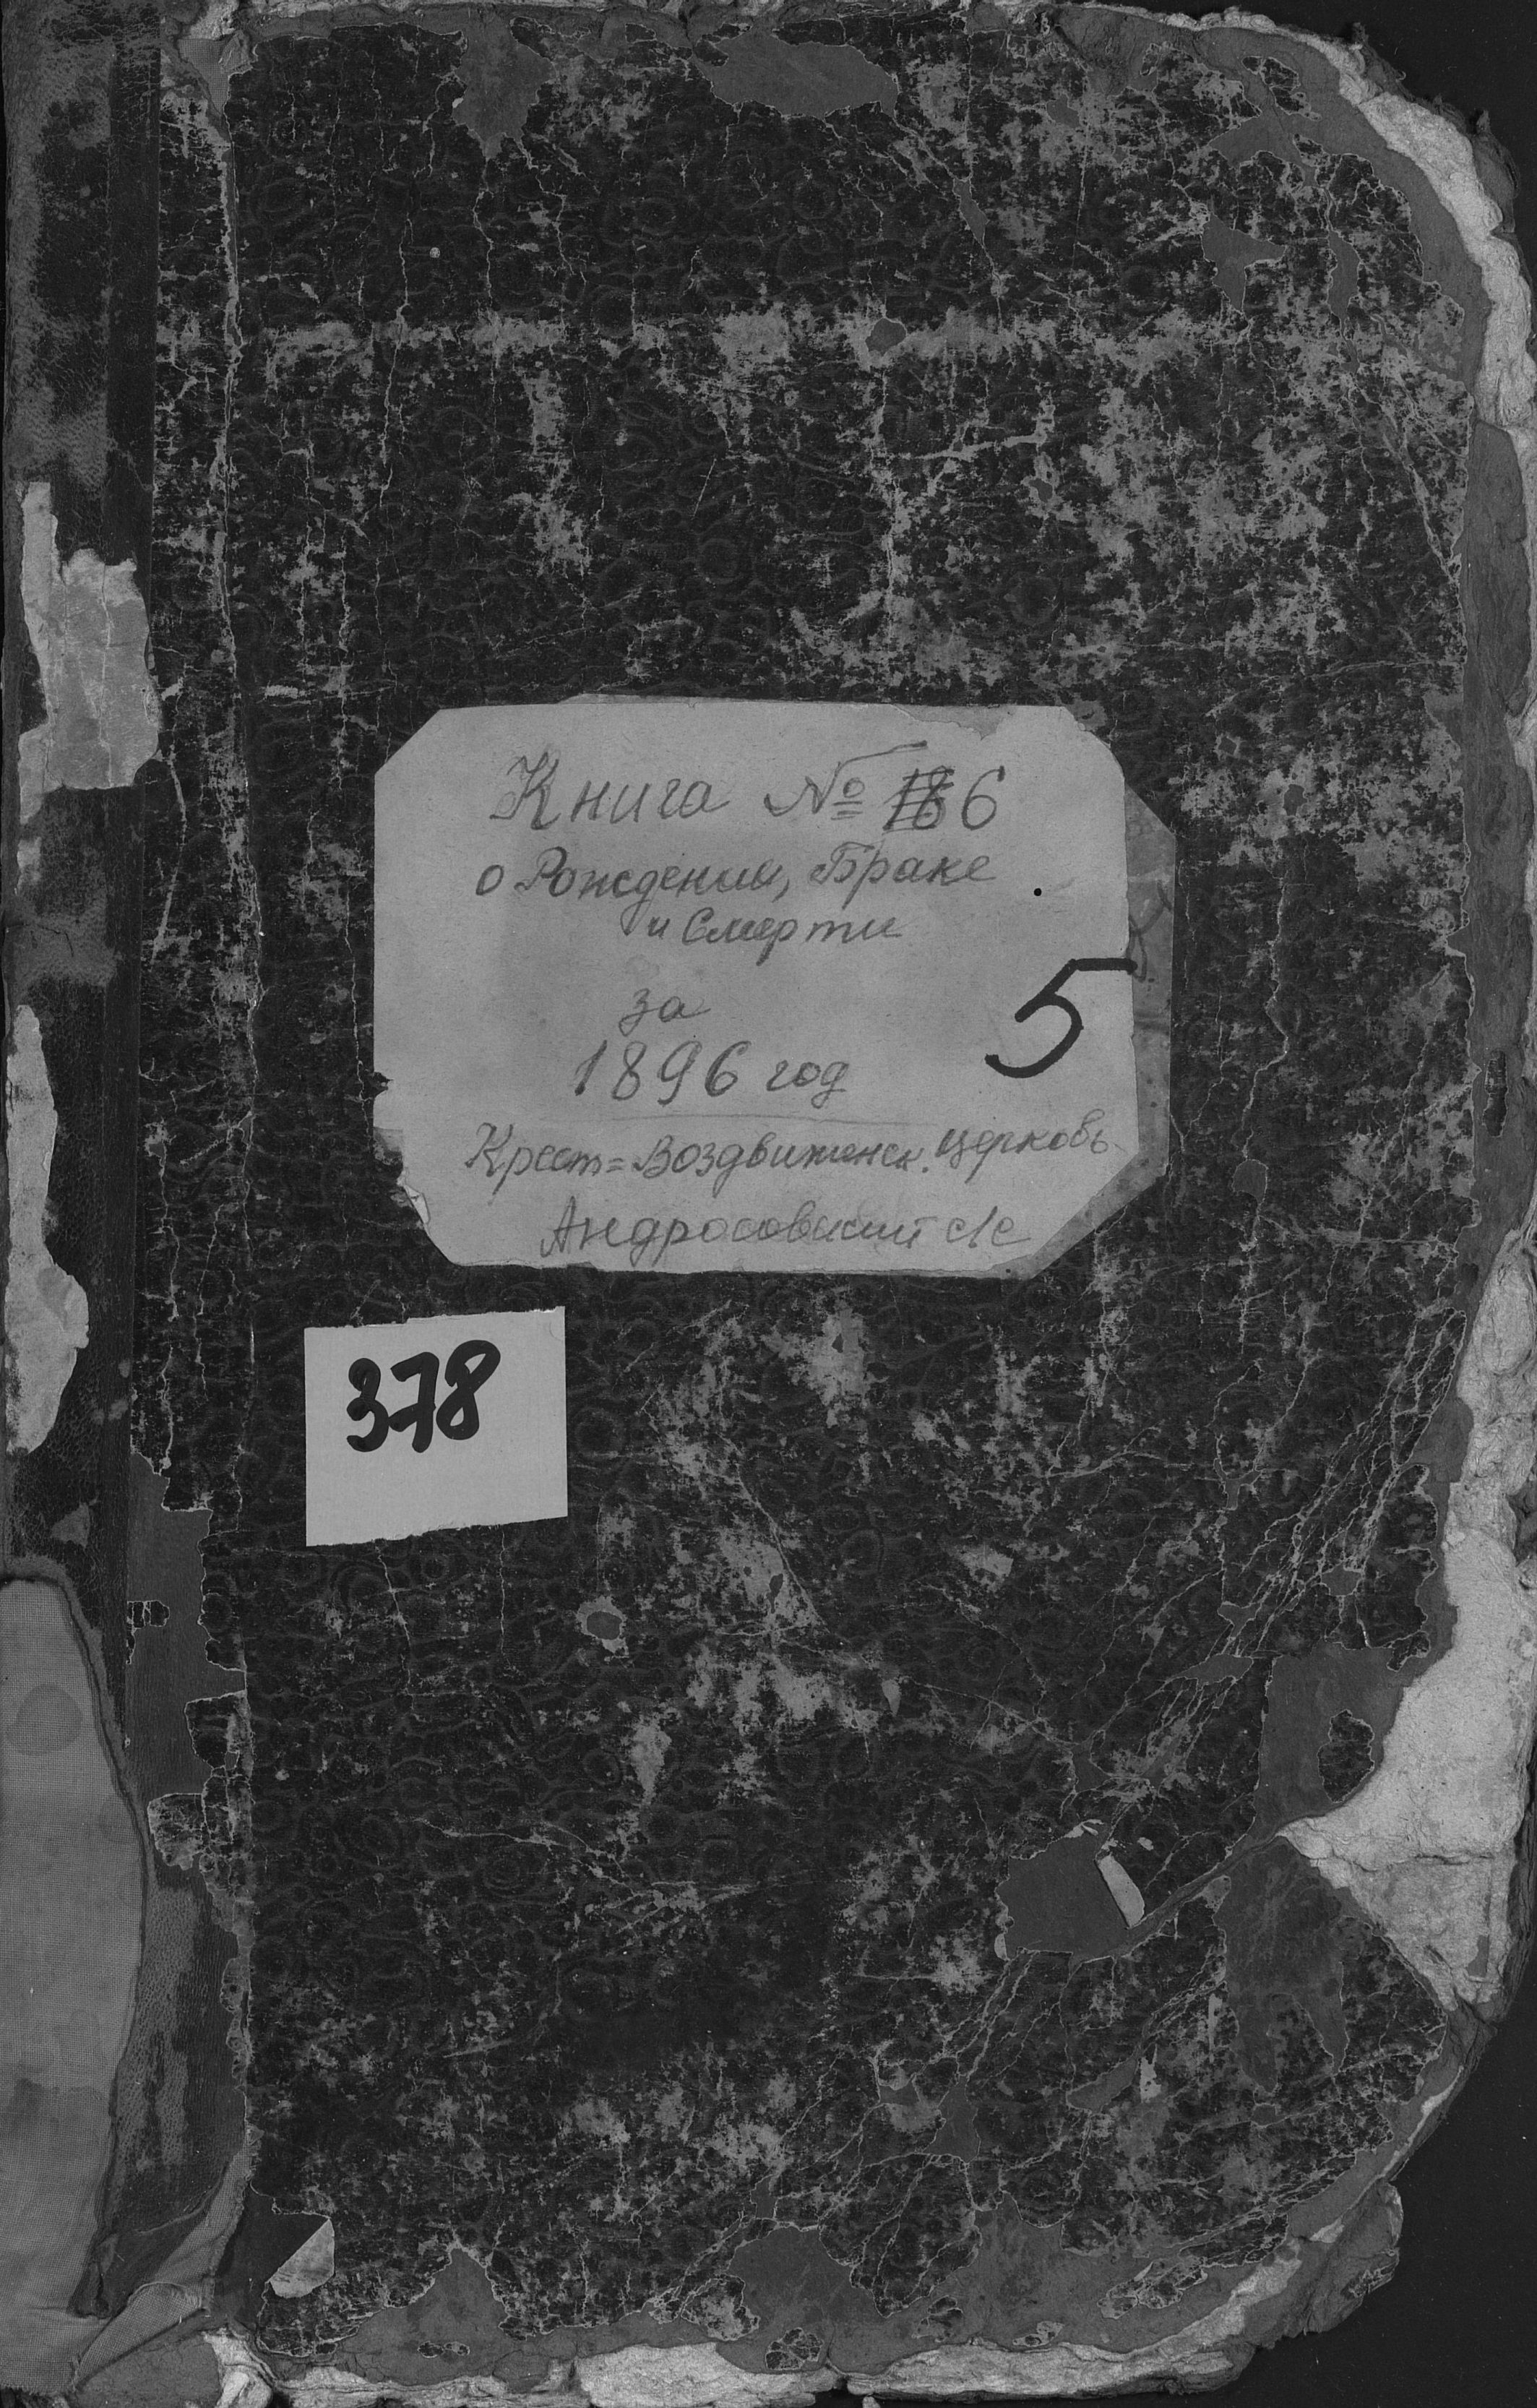 Книга № 6
о Рождении, Браке
и Смерти
за
1896 год
5
Крест=Воздвиженск. церковь
Андросовский с/с
378